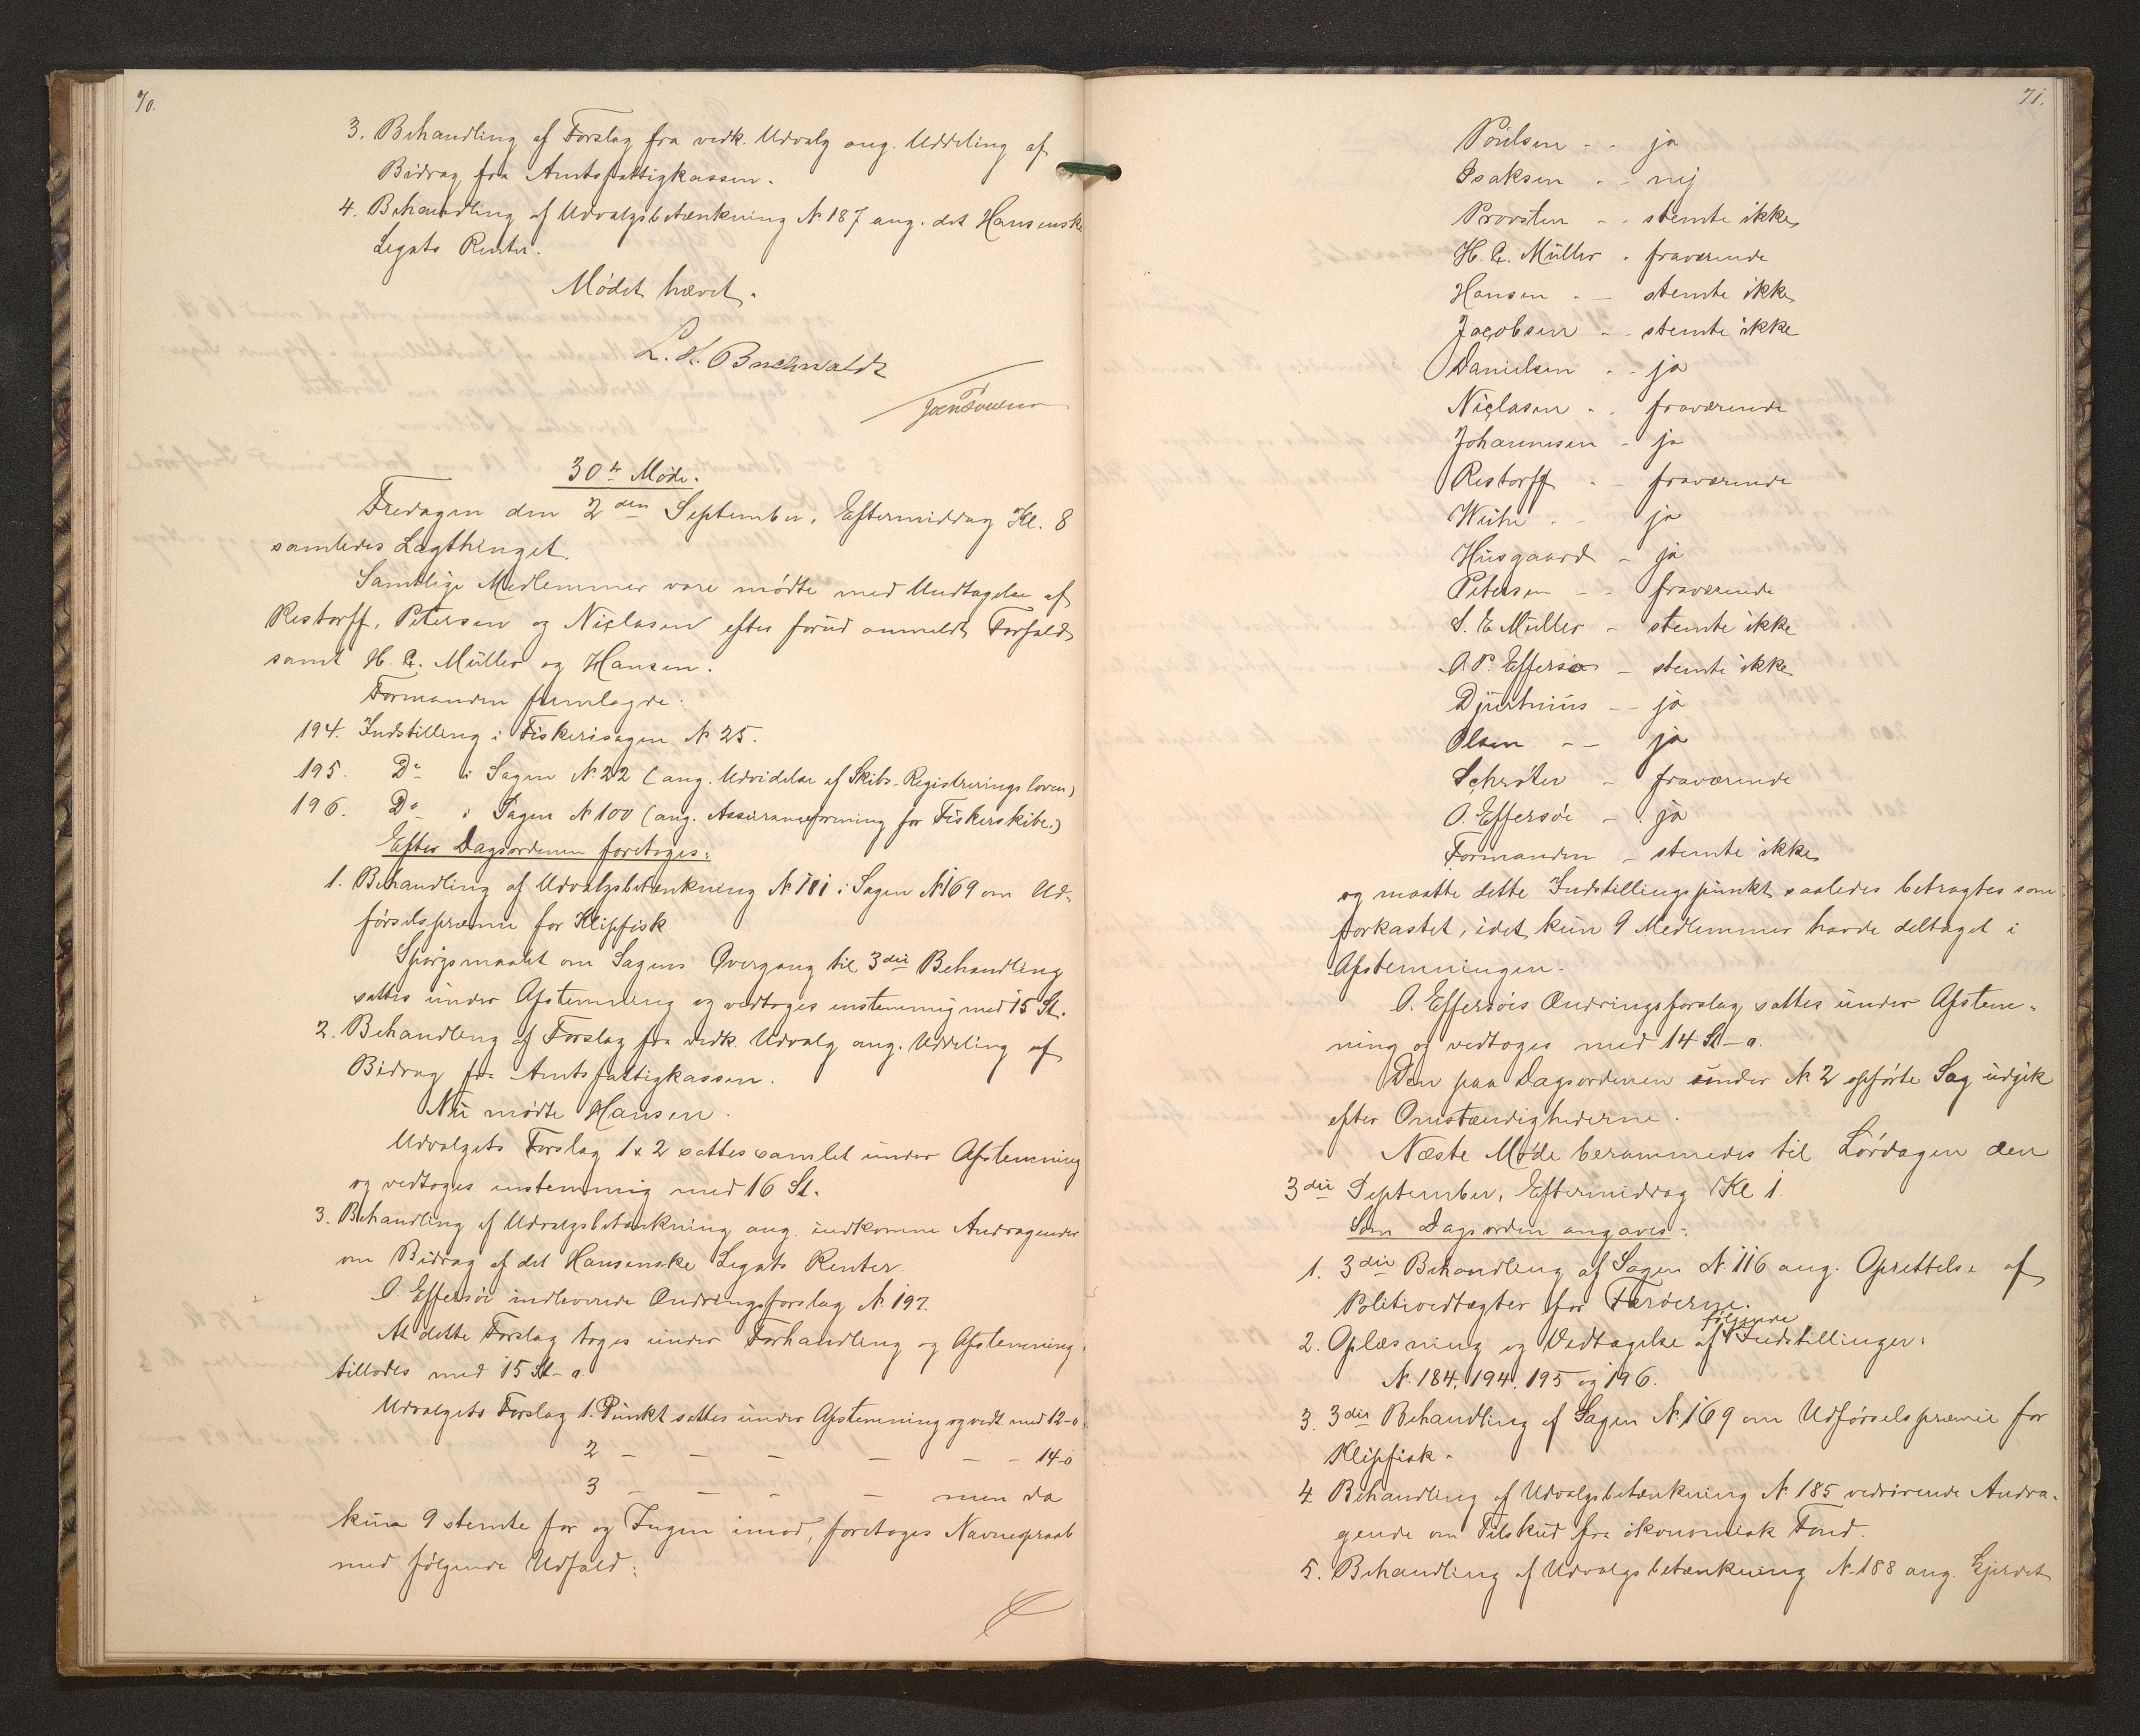 70.
3. Behandling af Forslag fra vedk. Udvalg ang. Uddeling af
Bidrag fra Amtsfattigkassen.
4. Behandling af Udvalgsbetænkning N. 187 ang. det Hansenske
Legats Renter.
Mødet hævet.
L. H. Buchwaldt
30te Møde.
Fredagen den 2den September, Eftermiddag Kl. 8
samledes Lagthinget.
Samtlige Medlemmer vare mødte med Undtagelse af
Restorff, Petersen og Niclasen efter forud anmeldt Forfald
samt H. C. Müller og Hansen.
Formanden fremlagde:
194. Indstilling i Fiskerisagen N. 25.
195. Do i Sagen N. 22 (ang. Udvidelse af Skibs-Registreringsloven)
196. Do i Sagen N. 100 (ang. Assuranceforening for Fiskerskibe.)
Efter Dagsordenen foretoges:
1. Behandling af Udvalgsbetænkning N. 181 i Sagen N. 169 om Ud-
førselspræmie for Klipfisk
Spørgsmaalet om Sagens Overgang til 3die Behandling
sattes under Afstemning og vedtoges enstemmig med 15 St.
2. Behandling af Forslag fra vedk. Udvalg ang. Uddeling af
Bidrag fra Amtsfattigkassen.
Nu mødte Hansen.
Udvalgets Forslag 1 & 2 sattes samlet under Afstemning
og vedtoges enstemmig med 16 St.
3. Behandling af Udvalgsbetænkning ang. indkomne Andragender
om Bidrag af det Hansenske Legats Renter.
O. Effersøe indleverede Ændringsforslag N. 197.
At dette Forslag toges under Forhandling og Afstemning
tillodes med 15 St - o.
Udvalgets Forslag 1. Punkt sattes under Afstemning og vedt. med 12-o.
2 - - - - - - 14-o
3 - - - - men da
kun 9 stemte for og Ingen imod, foretoges Navneopraab
med følgende Udfald:
71.
Poulsen - - ja
Isaksen - - nej
Provsten - - stemte ikke
H. C. Müller - fraværende
Hansen - - stemte ikke
Jacobsen - - stemte ikke
Danielsen - - ja
Niclasen - - fraværende
Johannesen - ja
Restorff - - fraværende
Weihe - - ja
Husgaard - ja
Petersen - - fraværende
S. E. Müller - stemte ikke
O. P. Effersø - stemte ikke
Djurhuus - - ja
Olsen - - ja
Schrøter - fraværende
O. Effersøe - ja
Formanden - stemte ikke
og maatte dette Indstillingspunkt saaledes betragtes som
forkastet, idet kun 9 Medlemmer havde deltaget i
Afstemningen.
O. Effersøes Ændringsforslag sattes under Afstem-
ning og vedtoges med 14 St - o.
Den paa Dagsordenen under N. 2 opførte Sag udgik
efter Omstændighederne.
Næste Møde berammedes til Lørdagen den
3die September, Eftermiddag Kl 1.
Som Dagsorden angaves:
1. 3die Behandling af Sagen N. 116 ang. Oprettelse af
Politivedtægter for Færøerne.
2. Oplæsning og Vedtagelse af følgende Indstillinger:
N. 184, 194, 195 og 196.
3. 3die Behandling af Sagen N. 169 om Udførselspræmie for
Klipfisk.
4. Behandling af Udvalgsbetænkning N. 185 vedrørende Andra-
gende om Tilskud fra økonomisk Fond.
5. Behandling af Udvalgsbetænkning N. 188 ang. Gjerdet